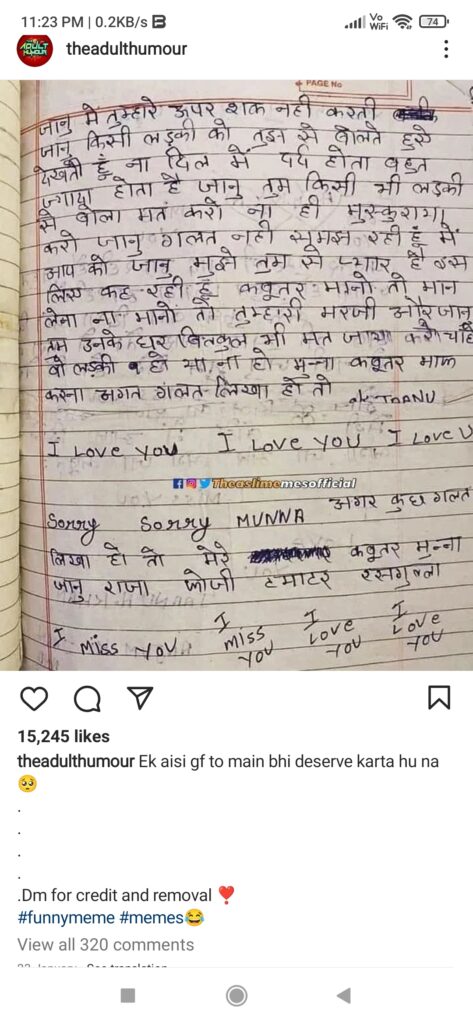 11:23 PM | 0.2KB/s
Vo WiFi
74
ADULT HUMOUR
theadulthumour
PAGE No
जानु में तुम्हारे ऊपर शक नही करती
जानु किसी लड़की को तुझ से बोलते हुसे
देखती हूँ ना दिल में दर्द होता बहुत
ज्यादा होता है जानु तुम किसी भी लड़की
से बोला मत करो ना ही मुस्कुराया
करो जानु गलत नही समझ रही हूँ में
आप को जानु मुझे तुम से प्यार है इस
लिए कह रही हूँ कबूतर मानो तो मान
लेना ना मानो तो तुम्हारी मरजी और जानु
तुम उनके घर बिलकुल भी मत जाया करो चाहे
वो लड़की हो या ना हो मुन्ना कबूतर माफ
करना अगत गलत लिखा हो तो
I LOVE YOU I LOVE YOU I LOVE U
Theaslimememesofficial
अगर कुछ गलत
Sorry Sorry MUNNA
लिखा हो तो मेरे कबूतर मुन्ना
जानु राजा टमाटर रसगुल्ला
I MISS YOU I MISS YOU I LOVE YOU I LOVE YOU
15,245 likes
theadulthumour Ek aisi gf to main bhi deserve karta hu na
🥺
.
.
.
.
.Dm for credit and removal ❣️
#funnymeme #memes😂
View all 320 comments